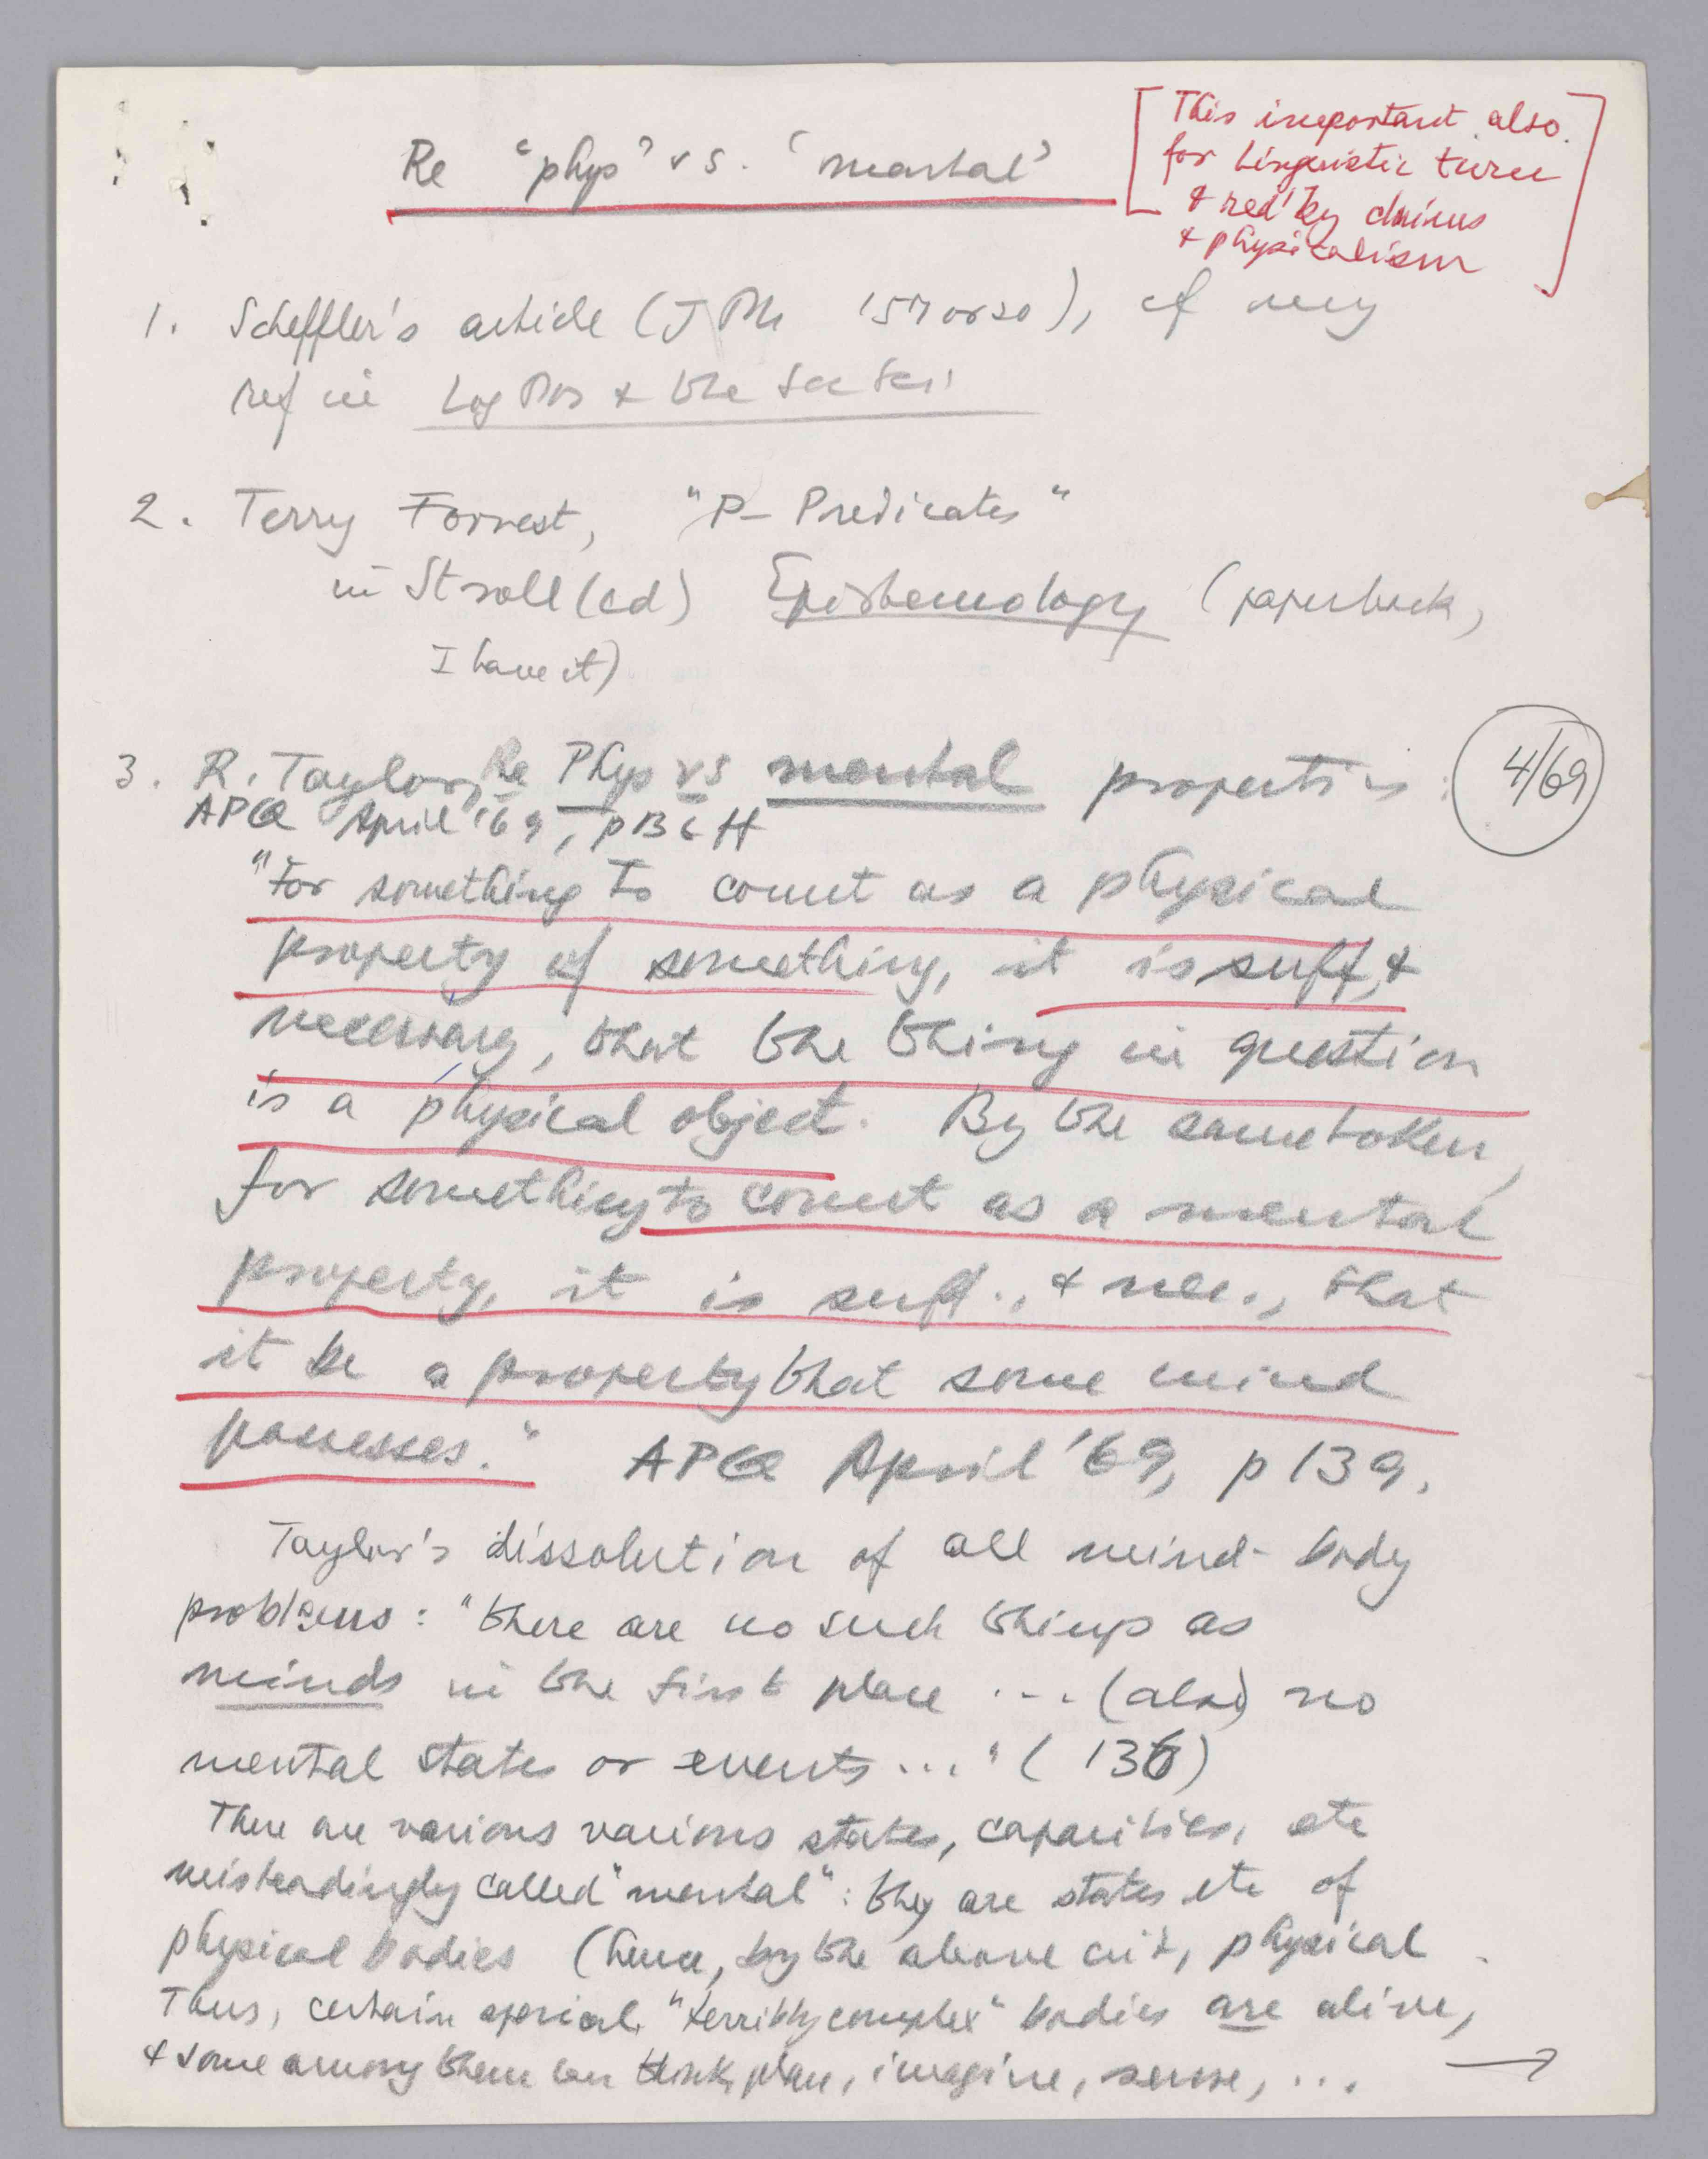 Re "phys" vs. 'mental'
[This important also
for Linguistic turn
& red'ty claims
& physicalism]
1. Scheffler's article (J Ph 157 or so), cf my
ref in Log Pos & the Soc Sci
2. Terry Forrest, "P-Predicates"
in Stroll (ed) Epistemology (paperback,
I have it)
3. R. Taylor, Re Phys vs mental properties:
4/69
APQ April '69, p
"For something to count as a physical
property of something, it is suff, &
necessary, that the thing in question
is a physical object. By the same token,
for something to count as a mental
property, it is suff., & nec., that
it be a property that some mind
possesses." APQ April '69, p 139.
Taylor's dissolution of all mind-body
problems: "there are no such things as
minds in the first place ... (also) no
mental states or events..." (136)
There are various various states, capacities, etc
misleadingly called "mental": they are states etc of
physical bodies (hence, by the above crit, physical.
Thus, certain special "terribly complex" bodies are alive,
& some among them can think, plan, imagine, sense, ... →